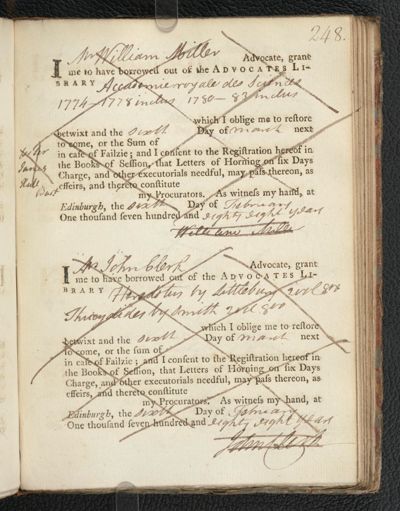 248.
I Mr William Miller Advocate, grant
me to have borrowed out of the ADVOCATES LI-
BRARY Academie royale des Sciences
1774–1778 inclus 1780–83 inclus
which I oblige me to restore
betwixt and the sixth Day of march next
to come, or the Sum of
in case of Failzie; and I consent to the Registration hereof in
the Books of Session, that Letters of Horning on six Days
Charge, and other executorials needful, may pass thereon, as
effeirs, and thereto constitute
my Procurators. As witness my hand, at
Edinburgh, the sixth Day of February
One thousand seven hundred and eighty eight years
William Miller
Sir
James
Hall
Bart
I Mr John Clerk Advocate, grant
me to have borrowed out of the ADVOCATES LI-
BRARY Herodotus by Littlebury 2 vol 8vo
Thucydides by Smith 2 vol 8vo
which I oblige me to restore
betwixt and the sixth Day of march next
to come, or the sum of
in case of Failzie; and I consent to the Registration hereof in
the Books of Session, that Letters of Horning on six Days
Charge, and other executorials needful, may pass thereon, as
effeirs, and thereto constitute
my Procurators. As witness my hand, at
Edinburgh, the sixth Day of February
One thousand seven hundred and eighty eight years
John Clerk